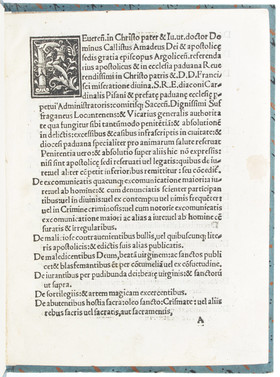 Reueren. in Christo pater & Iu.ut. doctor Do
minus Callistus Amadeus Dei & apostolicę
sedis gratia episcopus Argolicen. referenda
rius apostolicus & in ecclesia paduana Reue
rendissimi in Christo patris & .D.D. Francis
ci miseratione diuina .S.R.E. diaconi Car
dinalis Pisani & pręfatę paduanę ecclesię p
petui Administratoris: comitisq; Saccen. Dignissimi Suf
fraganeus Locumtenens: & Vicarius generalis authorita
te qua fungitur sibi tantūmodo penitētię: & absolutiones
in delictis: excessibus & casibus infrascriptis in ciuitate: &
diocesi paduana specialiter pro animarum salute reseruat
Penitentia uero & absolutio super aliis hic nō expressis:
nisi sint apostolicę sedi reseruati uel legatis: quibus de iure
uel alter ei petit inferiori bus remittitur: seu cōcedit.
De excomunicatis quacunq; excomunicatione maiori a iu
re: uel ab homine & cum denunciatis scienter participan
tibus uel in diuinis: uel in cotemptu uel nimis frequēter
uel in Crimine criminosis: uel cum notorie excomunicatis
excomunicatione maiori ac aliis a iure uel ab homine cē
suratis & irregularibus.
De male iose contrauenientibus bullis, uel quibuscunq; litteris
apostolicis: & edictis suis alias publicatis.
De maledicentibus Deum, beatā uirginem: ac sanctos publice
et & blasfemantibus ēt per cōtumeliā uel ex cōsuetudine.
De iurantibus per pudibunda dei: beatę uirginis: & sanctorū
ut supra.
De sortilegiis: & artem magicam excercentibus.
De abutentibus hostia sacra: oleo sancto: Crismate: uel aliis
rebus sacris uel sacratis, aut sacramentis,
A